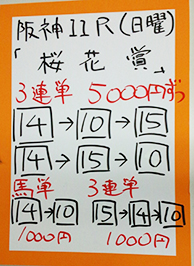 阪神11R(日曜)
「桜花賞」
3連単 5000円ずつ
14→10→15
14→15→10
馬単 3連単
14→10 15→14→10
1000円 1000円